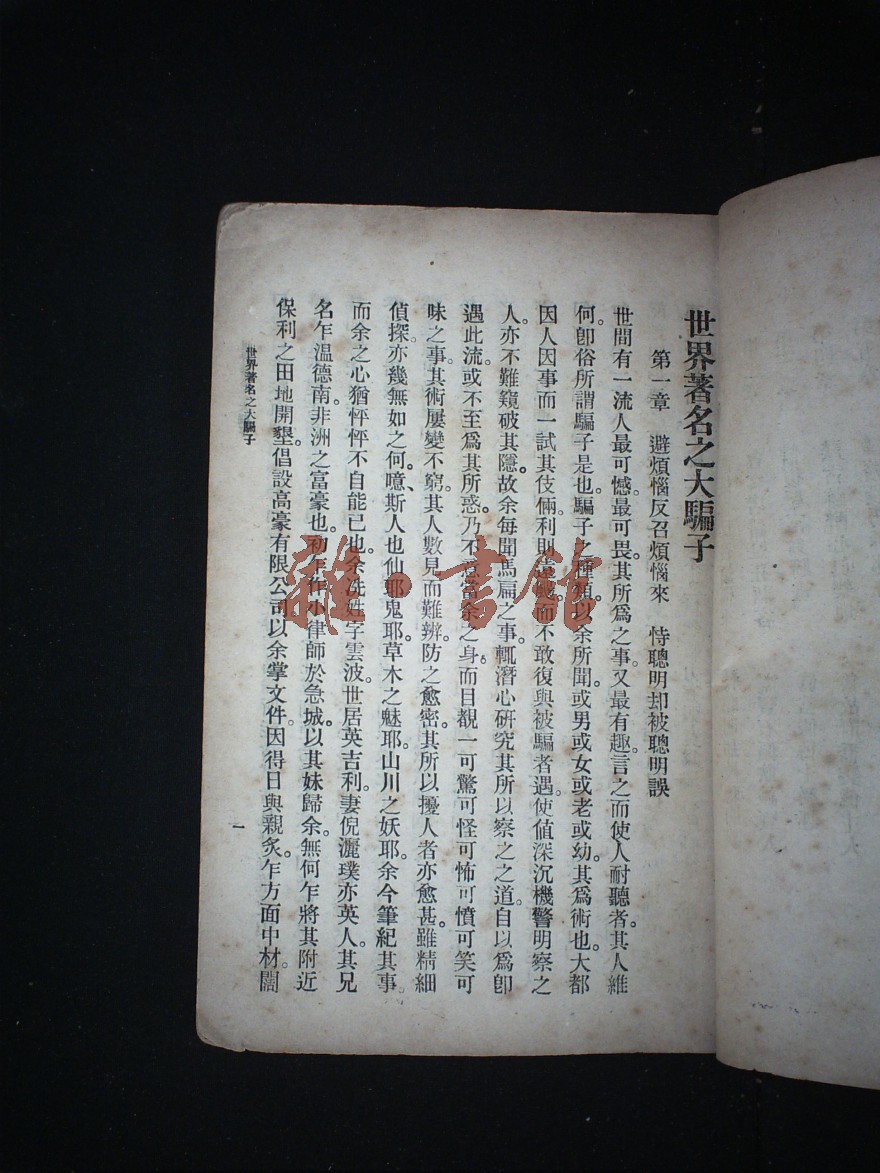 世界著名之大騙子
第一章 避煩惱反召煩惱來 恃聰明却被聰明誤
世間有一流人最可憾。最可畏。其所爲之事。又最有趣。言之而使人耐聽者。其人維
何。卽俗所謂騙子是也。騙子之種類。以余所聞。或男或女或老或幼。其爲術也。大都
因人因事而一試其伎倆。利則遠颺而不敢復與被騙者遇。使値深沉機警明察之
人。亦不難窺破其隱。故余每聞馮扁之事。輒潛心研究其所以察之之道。自以爲卽
遇此流。或不至爲其所惑。乃不 當余之身。而目覩一可驚可怪可怖可憤可笑可
味之事。其術屢變不窮。其人數見而難辨。防之愈密。其所以擾人者亦愈甚。雖精細
偵探。亦幾無如之何。噫、斯人也仙耶鬼耶。草木之魅耶。山川之妖耶。余今筆紀其事。
而余之心猶怦怦不自能已也。余冼姓字雲波。世居英吉利。妻倪灑璞亦英人。其兄
名乍溫德南。非洲之富豪也。初乍作小律師於急城。以其妹歸余。無何乍將其附近
保利之田地開墾。倡設高豪有限公司。以余掌文件。因得日與親炙。乍方面中材。闊
世界著名之大騙子
一
雜·書館